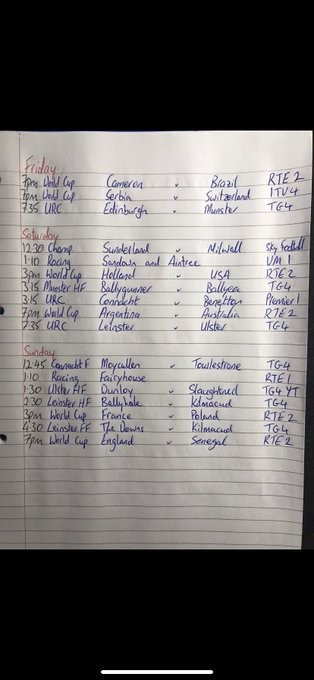 Friday
7pm World Cup Cameron v Brazil RTE 2
7pm World Cup Serbia v Switzerland ITV4
7.35 URC Edinburgh v Munster TG4
Saturday
12.30 Champ. Sunderland v Millwell Sky Football
1:10 Racing Sandown and Aintree VM 1
3pm World Cup Holland v USA RTE 2
3:15 Munster HF Ballygunner v Ballyea TG4
3.15 URC Connacht v Benetton Premier 1
7pm World Cup Argentina v Australia RTE 2
7:35 URC Leinster v Ulster TG4
Sunday
12:45 Connacht F Moycullen v Tourlestrane TG4
1:10 Racing Fairyhouse RTE 1
1:30 Ulster HF Dunloy v Slaughtneil TG4 YT
2:30 Leinster HF Ballyhale v Kilmacud TG4
3pm World Cup France v Poland RTE 2
4:30 Leinster FF The Downs v Kilmacud TG4
7pm World Cup England v Senegal RTE 2